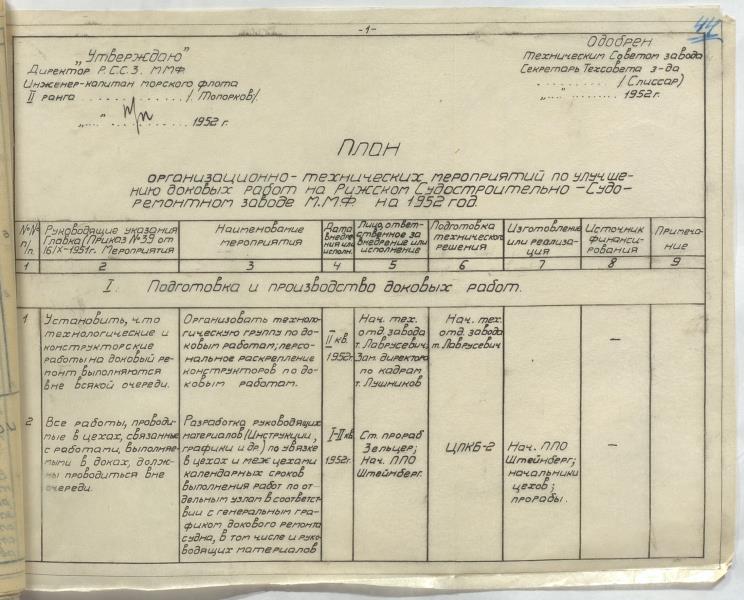 -1-
44
„Утверждаю"
Директор Р.С.С.З. М.М.Ф.
Инженер-капитан морского флота
II ранга . . . . . . . . . . . . . /Топорков/.
„....." . . . . . . . . . . 1952 г.
Одобрен
Техническим Советом завода
Секретарь Техсовета з-да
. . . . . . . . . . /Слиссар/
„....." . . . . . . . . . 1952 г.
План
организационно-технических мероприятий по улучше-
нию доковых работ на Рижском Судостроительно-Судо-
ремонтном заводе М.М.Ф. на 1952 год.
№№ п/п.
Руководящие указания
Главка (Приказ №39 от
16/X-1951г. Мероприятия
Наименование
мероприятия
Дата
внедре
ния или
исполн.
Лицо, ответ-
ственное за
внедрение или
исполнение
Подготовка
технического
решения
Изготовление
или реализа-
ция
Источник
финанси-
рования
Примеча-
ние
1 2 3 4 5 6 7 8 9
I. Подготовка и производство доковых работ.
1
Установить, что
технологические и
конструкторские
работы на доковый ре-
монт выполняются
вне всякой очереди.
Организовать техноло-
гическую группу по до-
ковым работам; персо-
нальное раскрепление
конструкторов по до-
ковым работам.
II кв.
1952г.
Нач. тех.
отд. завода
т. Лаврусевич;
Зам. директора
по кадрам
т. Лушников
Нач. тех.
отд. завода
т. Лаврусевич
—
2
Все работы, проводи-
мые в цехах, связанные
с работами, выполняе-
мыми в доках, долж-
ны проводиться вне
очереди.
Разработка руководящих
материалов (Инструкции,
графики и др.) по увязке
в цехах и меж цехами
календарных сроков
выполнения работ по от-
дельным узлам в соответст-
вии с генеральным гра-
фиком докового ремонта
судна, в том числе и руко-
водящих материалов
I-II кв
1952г.
Ст. прораб
Зельцер;
Нач. ППО
Штейнберг.
ЦПКБ-2
Нач. ППО
Штейнберг;
начальники
цехов;
прорабы.
—